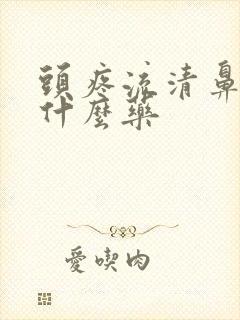 頭疼流清鼻
什麼藥
愛喫肉